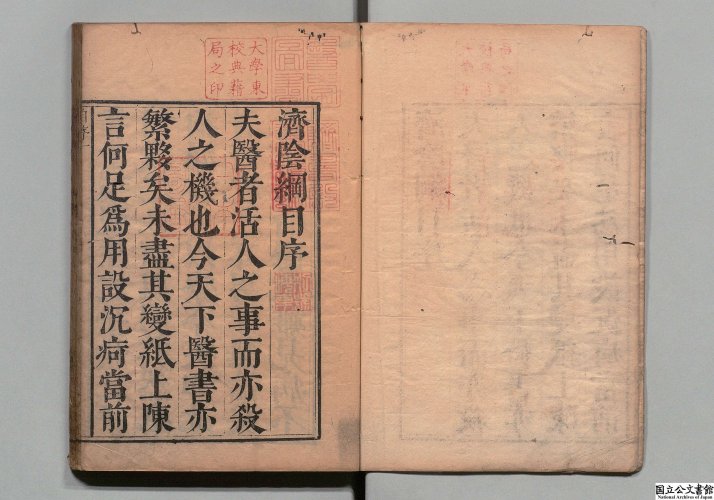 濟陰綱目序
夫醫者活人之事而亦殺
人之機也今天下醫書亦
繁夥矣未盡其變紙上陳
言何足爲用設沉疴當前
大學東
校典籍
局之印
国立公文書館
National Archives of Japan